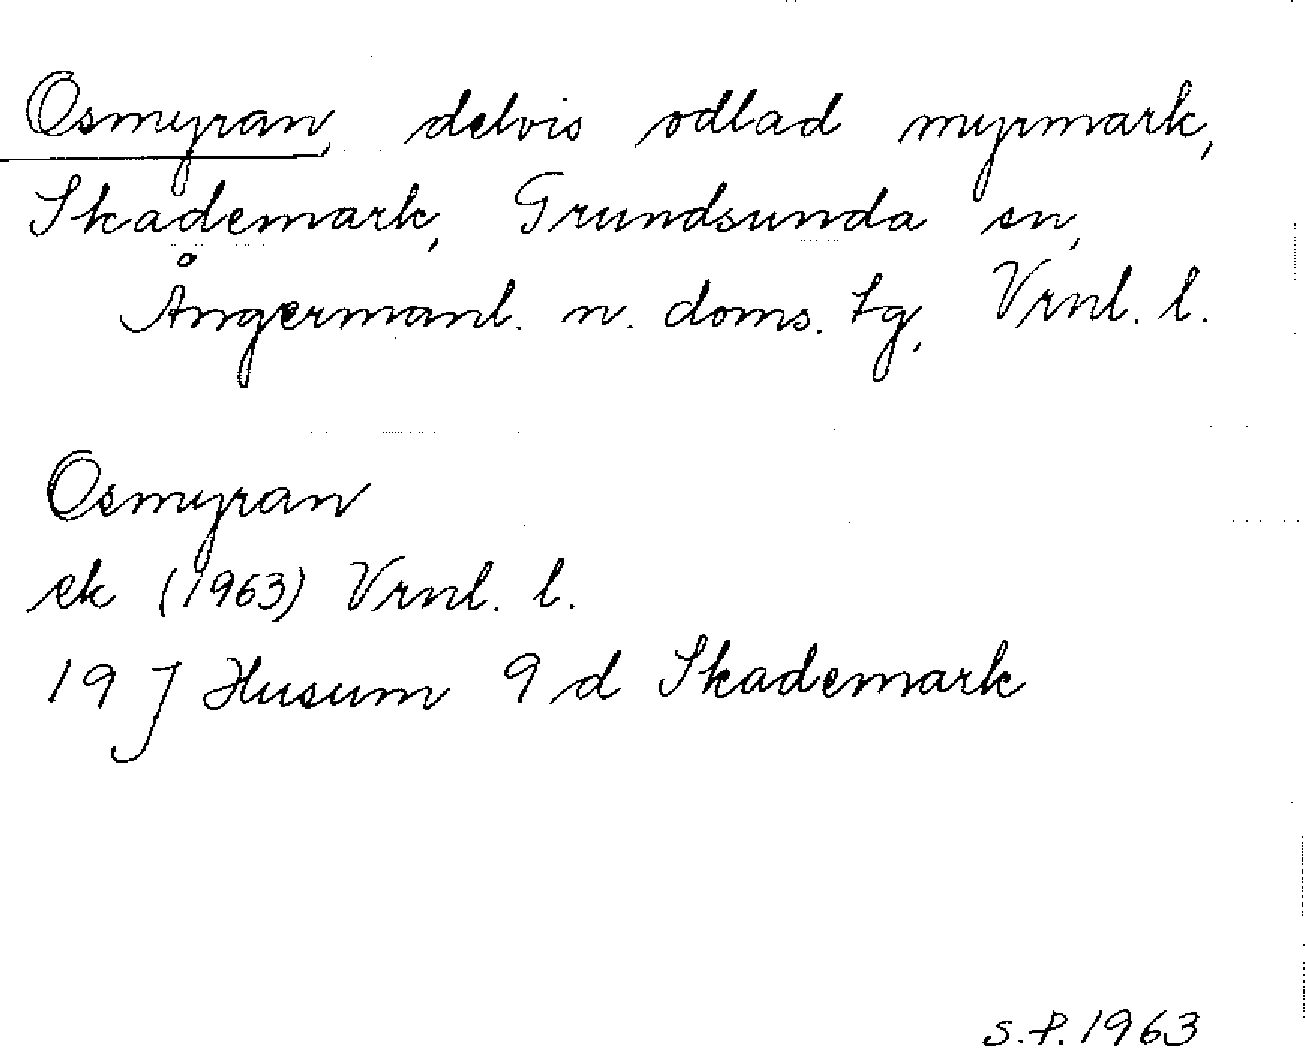 Osmyran, delvis odlad myrmark,
Skademark, Grundsunda sn,
Ångermanl. n. doms. tg, Vrnl. l.
Osmyran
ek (1963) Vrnl. l.
19 J Husum 9 d Skademark
S.P. 1963